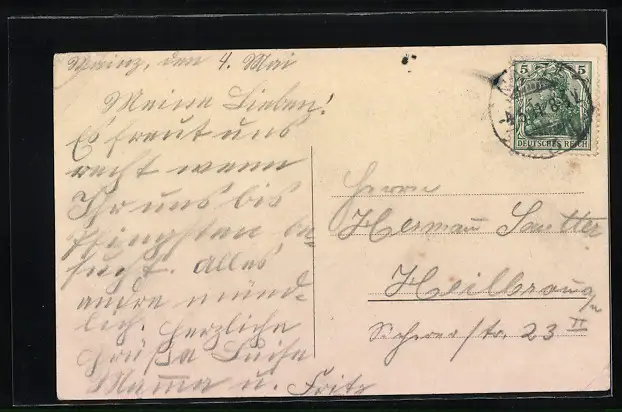 Mainz, den 4. Mai
Meine Lieben!
Es freut uns
recht wenn
Ihr uns bis
Pfingsten be-
sucht. Alles
andre münd-
lich. Herzliche
Grüße Luise
Mama u. Fritz
5 5
DEUTSCHES REICH
Herrn
Hermann Sautter
Heilbronn a/N
Sicherer/str. 23 II